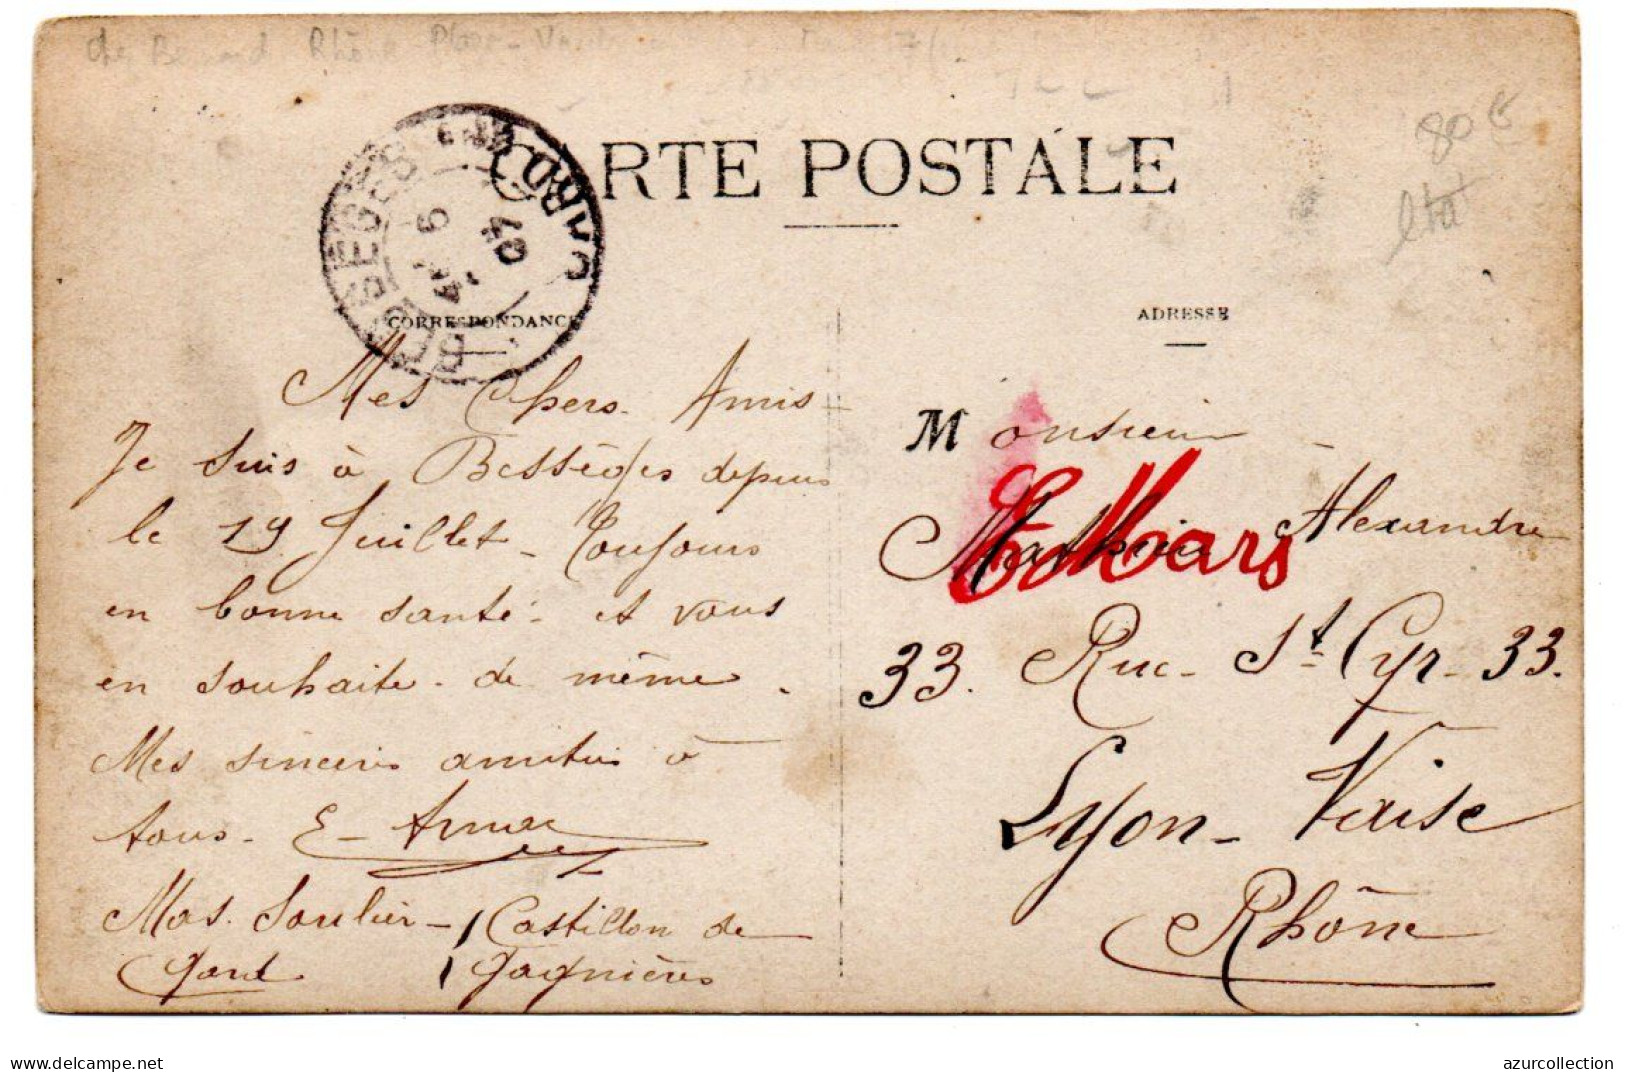 CARTE POSTALE
80 €
BESSÈGES
GARD
6
07
CORRESPONDANCE
ADRESSE
Mes Chers Amis
Je suis à Bessèges depuis
le 19 Juillet - Toujours
en bonne santé. et vous
en souhaite de même.
Mes sincères amitiés à
tous - E -
Mas Soulier - (Castillon de
Gard ( Gagnières
Monsieur
Mathieu Alexandre
E Mars
33. Rue St Cyr - 33.
Lyon - Vaise
Rhône
delcampe.net
azurcollection